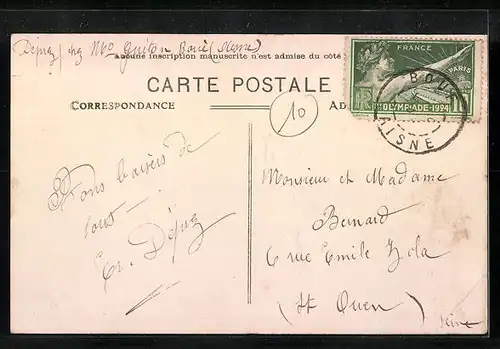 Dépaz chez Mr
Aucune inscription manuscrite n'est admise du côté
CARTE POSTALE
CORRESPONDANCE
10
FRANCE
PARIS
RF
OLYMPIADE-1924
BOU
AISNE
Bons baisers de
tous
Monsieur et Madame
Bernard
6 rue Emile Zola
(St Ouen)
Seine